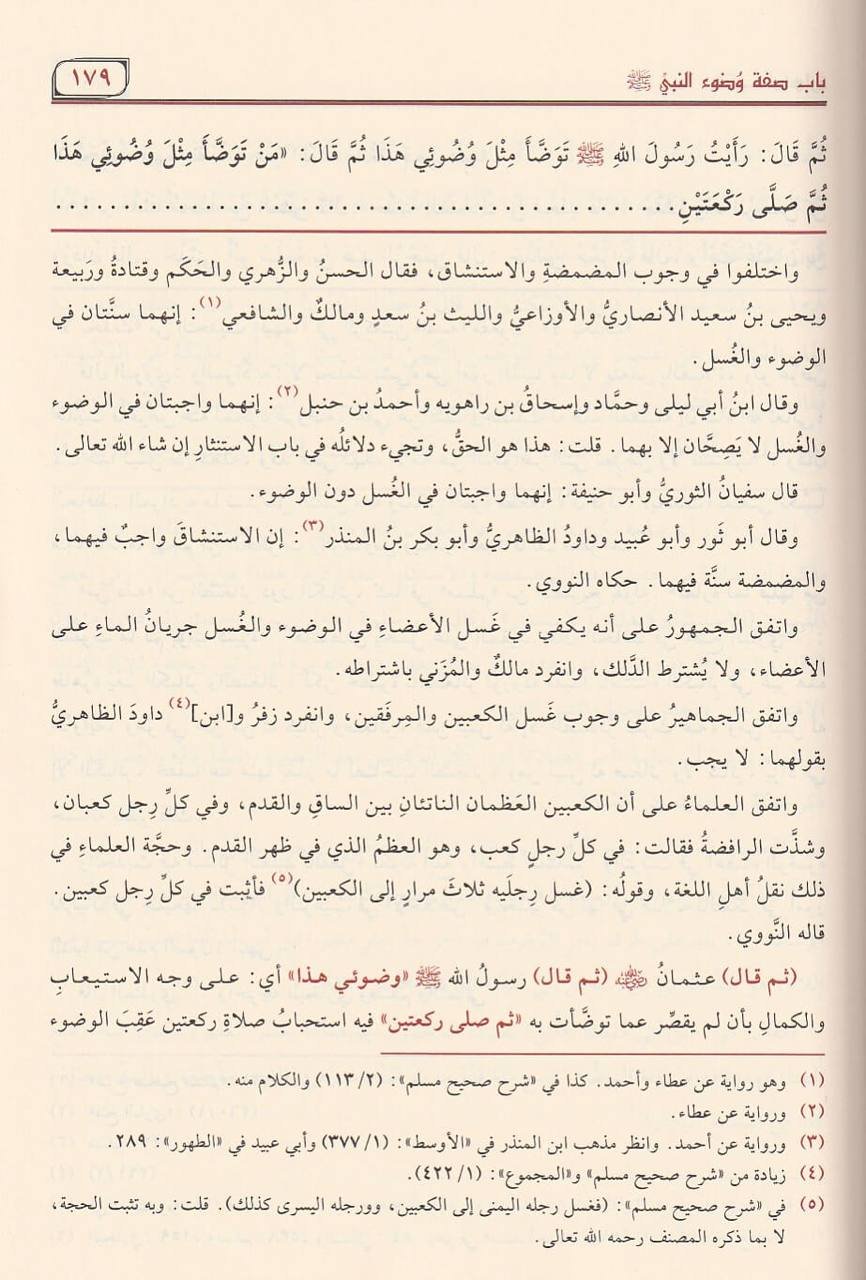 باب صفة وُضوء النبيّ ﷺ
١٧٩
ثُمَّ قَالَ: رَأَيْتُ رَسُولَ اللهِ ﷺ تَوَضَّأَ مِثْلَ وُضُوئِي هَذَا ثُمَّ قَالَ: «مَنْ تَوَضَّأَ مِثْلَ وُضُوئِي هَذَا
ثُمَّ صَلَّى رَكْعَتَيْنِ. . . . . . . . . . . . . . . . . . . . . . . . . . . . . . . . . . . . . . . . . . . . . . . .
واختلفوا في وجوب المضمضةِ والاستنشاق، فقال الحسنُ والزُّهري والحَكَم وقتادةُ ورَبيعة
ويحيى بنُ سعيد الأنصاريُّ والأوزاعيُّ والليث بنُ سعدٍ ومالكٌ والشافعي(١): إنهما سنَّتان في
الوضوء والغُسل.
وقال ابنُ أبي ليلى وحمَّاد وإسحاقُ بن راهويه وأحمدُ بن حنبل(٢): إنهما واجبتان في الوضوء
والغُسل لا يَصِحَّان إلا بهما. قلت: هذا هو الحقُّ، وتجيء دلائلُه في باب الاستنثارِ إن شاء الله تعالى.
قال سفيانُ الثوريُّ وأبو حنيفة: إنهما واجبتان في الغُسل دون الوضوء.
وقال أبو ثَور وأبو عُبيد وداودُ الظاهريُّ وأبو بكر بنُ المنذر(٣): إن الاستنشاقَ واجبٌ فيهما،
والمضمضة سنَّة فيهما. حكاه النووي.
واتفق الجمهورُ على أنه يكفي في غَسل الأعضاءِ في الوضوء والغُسل جريانُ الماءِ على
الأعضاء، ولا يُشترط الدَّلك، وانفرد مالكٌ والمُزَني باشتراطه.
واتفق الجماهيرُ على وجوب غَسل الكعبين والمِرفَقين، وانفرد زفرُ و[ابن](٤) داودَ الظاهريُّ
بقولهما: لا يجب.
واتفق العلماءُ على أن الكعبين العَظمان الناتئانِ بين الساقِ والقدم، وفي كلِّ رِجل كعبان،
وشذَّت الرافضةُ فقالت: في كلِّ رجلٍ كعب، وهو العظمُ الذي في ظهر القدم. وحجَّة العلماءِ في
ذلك نقلُ أهلِ اللغة، وقولُه: (غسل رِجلَيه ثلاثَ مرارٍ إلى الكعبين)(٥) فأثبت في كلِّ رِجل كعبين.
قاله النَّووي.
(ثم قال) عثمانُ رضي الله عنه (ثم قال) رسولُ الله ﷺ «وضوئي هذا» أي: على وجه الاستيعابِ
والكمالِ بأن لم يقصِّر عما توضَّأت به «ثم صلى ركعتين» فيه استحبابُ صلاةِ ركعتين عَقِبَ الوضوء
(١) وهو رواية عن عطاء وأحمد. كذا في «شرح صحيح مسلم»: (٢/ ١١٣) والكلام منه.
(٢) ورواية عن عطاء.
(٣) ورواية عن أحمد. وانظر مذهب ابن المنذر في «الأوسط»: (١/ ٣٧٧) وأبي عبيد في «الطهور»: ٢٨٩.
(٤) زيادة من «شرح صحيح مسلم» و«المجموع»: (١/ ٤٢٢).
(٥) في «شرح صحيح مسلم»: (فغسل رجله اليمنى إلى الكعبين، وورجله اليسرى كذلك). قلت: وبه تثبت الحجة،
لا بما ذكره المصنف رحمه الله تعالى.